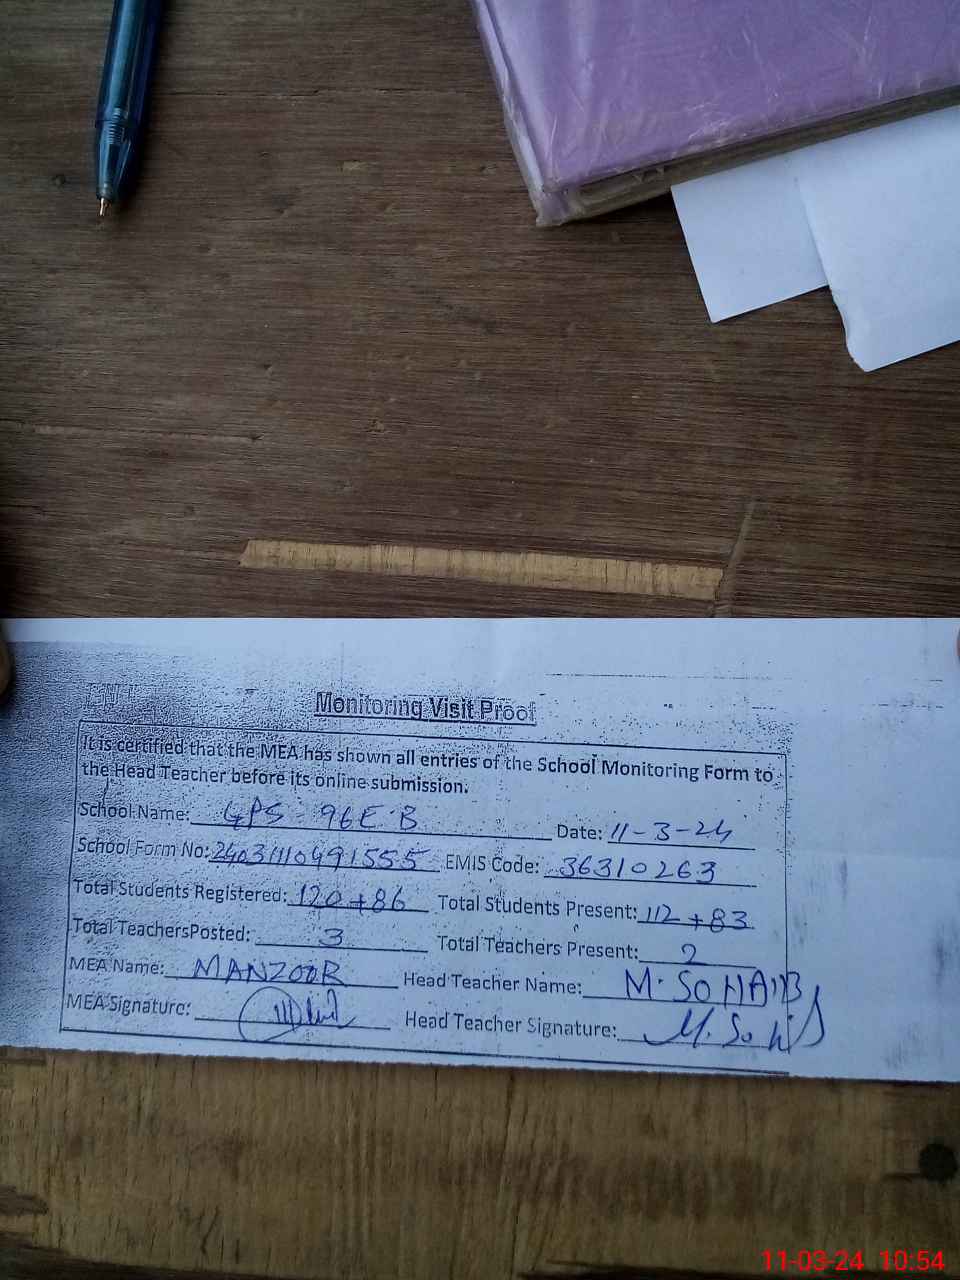 Monitoring Visit Proof
It is certified that the MEA has shown all entries of the School Monitoring Form to
the Head Teacher before its online submission.
School Name: GPS - 96E.B Date: 11-3-24
School Form No: 24031110491555 EMIS Code: 36310263
Total Students Registered: 120+86 Total Students Present: 112+83
Total TeachersPosted: 3 Total Teachers Present: 2
MEA Name: MANZOOR Head Teacher Name: M. SOHAIB
MEA Signature: Head Teacher Signature:
11-03-24 10:54